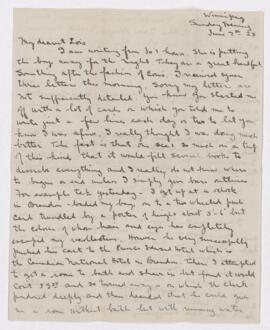 Winnipeg
Sunday Evening
June 7th 25
My dearest Lois
I am writing from Jo's house. She is putting
the boy away for the night. They are a great handful
Something after the fashion of Lois. I received your
three letters this morning. Sorry my letters are
not sufficiently detailed. You know you started me
off with a lot of cards on which you told me to
write just a few lines each day or two to let you
know I was alive. I really thought I was doing much
better. The fact is that one sees so much on a trip
of this kind that it would fill several books to
describe everything and I really do not know where
to begin or end unless I simply give bare outlines
For example take yesterday - I got up at 5 o'clock
in Brandon - loaded my bag on to a two wheeled push
cart handled by a porter of height about 5'.6" but
the colour of whose hair and eyes has completely
escaped my recollection. However he very successfully
pushed his cart to the Prince Edward Hotel which is
the Canadian National Hotel in Brandon. Then I attempted
to get a room to bath and shave in but found it would
cost 3.50 and so turned away - on which the clerk
pondered deeply and then decided that he could give
me a room without bath but with running water